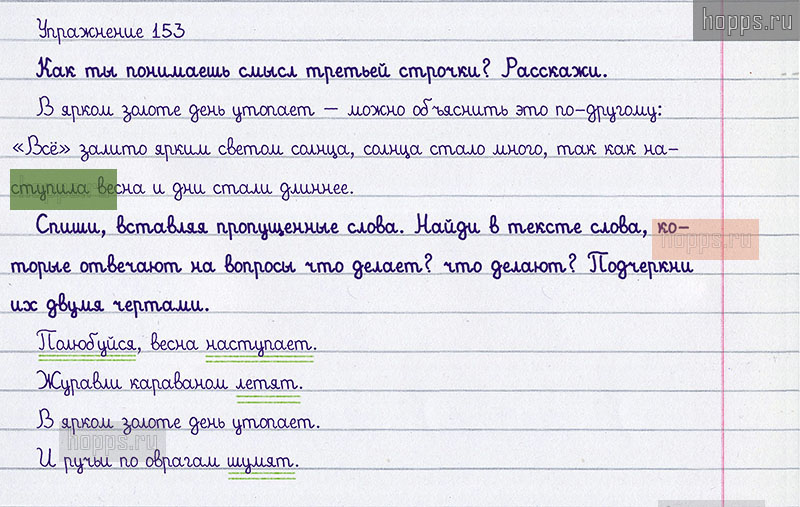 hopps.ru
Упражнение 153
Как ты понимаешь смысл третьей строчки? Расскажи.
В ярком золоте день утопает – можно объяснить это по-другому:
«Всё» залито ярким светом солнца, солнца стало много, так как на-
ступила весна и дни стали длиннее.
Спиши, вставляя пропущенные слова. Найди в тексте слова, ко-
hopps.ru
торые отвечают на вопросы что делает? что делают? Подчеркни
их двумя чертами.
Полюбуйся, весна наступает.
Журавли караваном летят.
В ярком золоте день утопает.
hopps.ru
И ручьи по оврагам шумят.